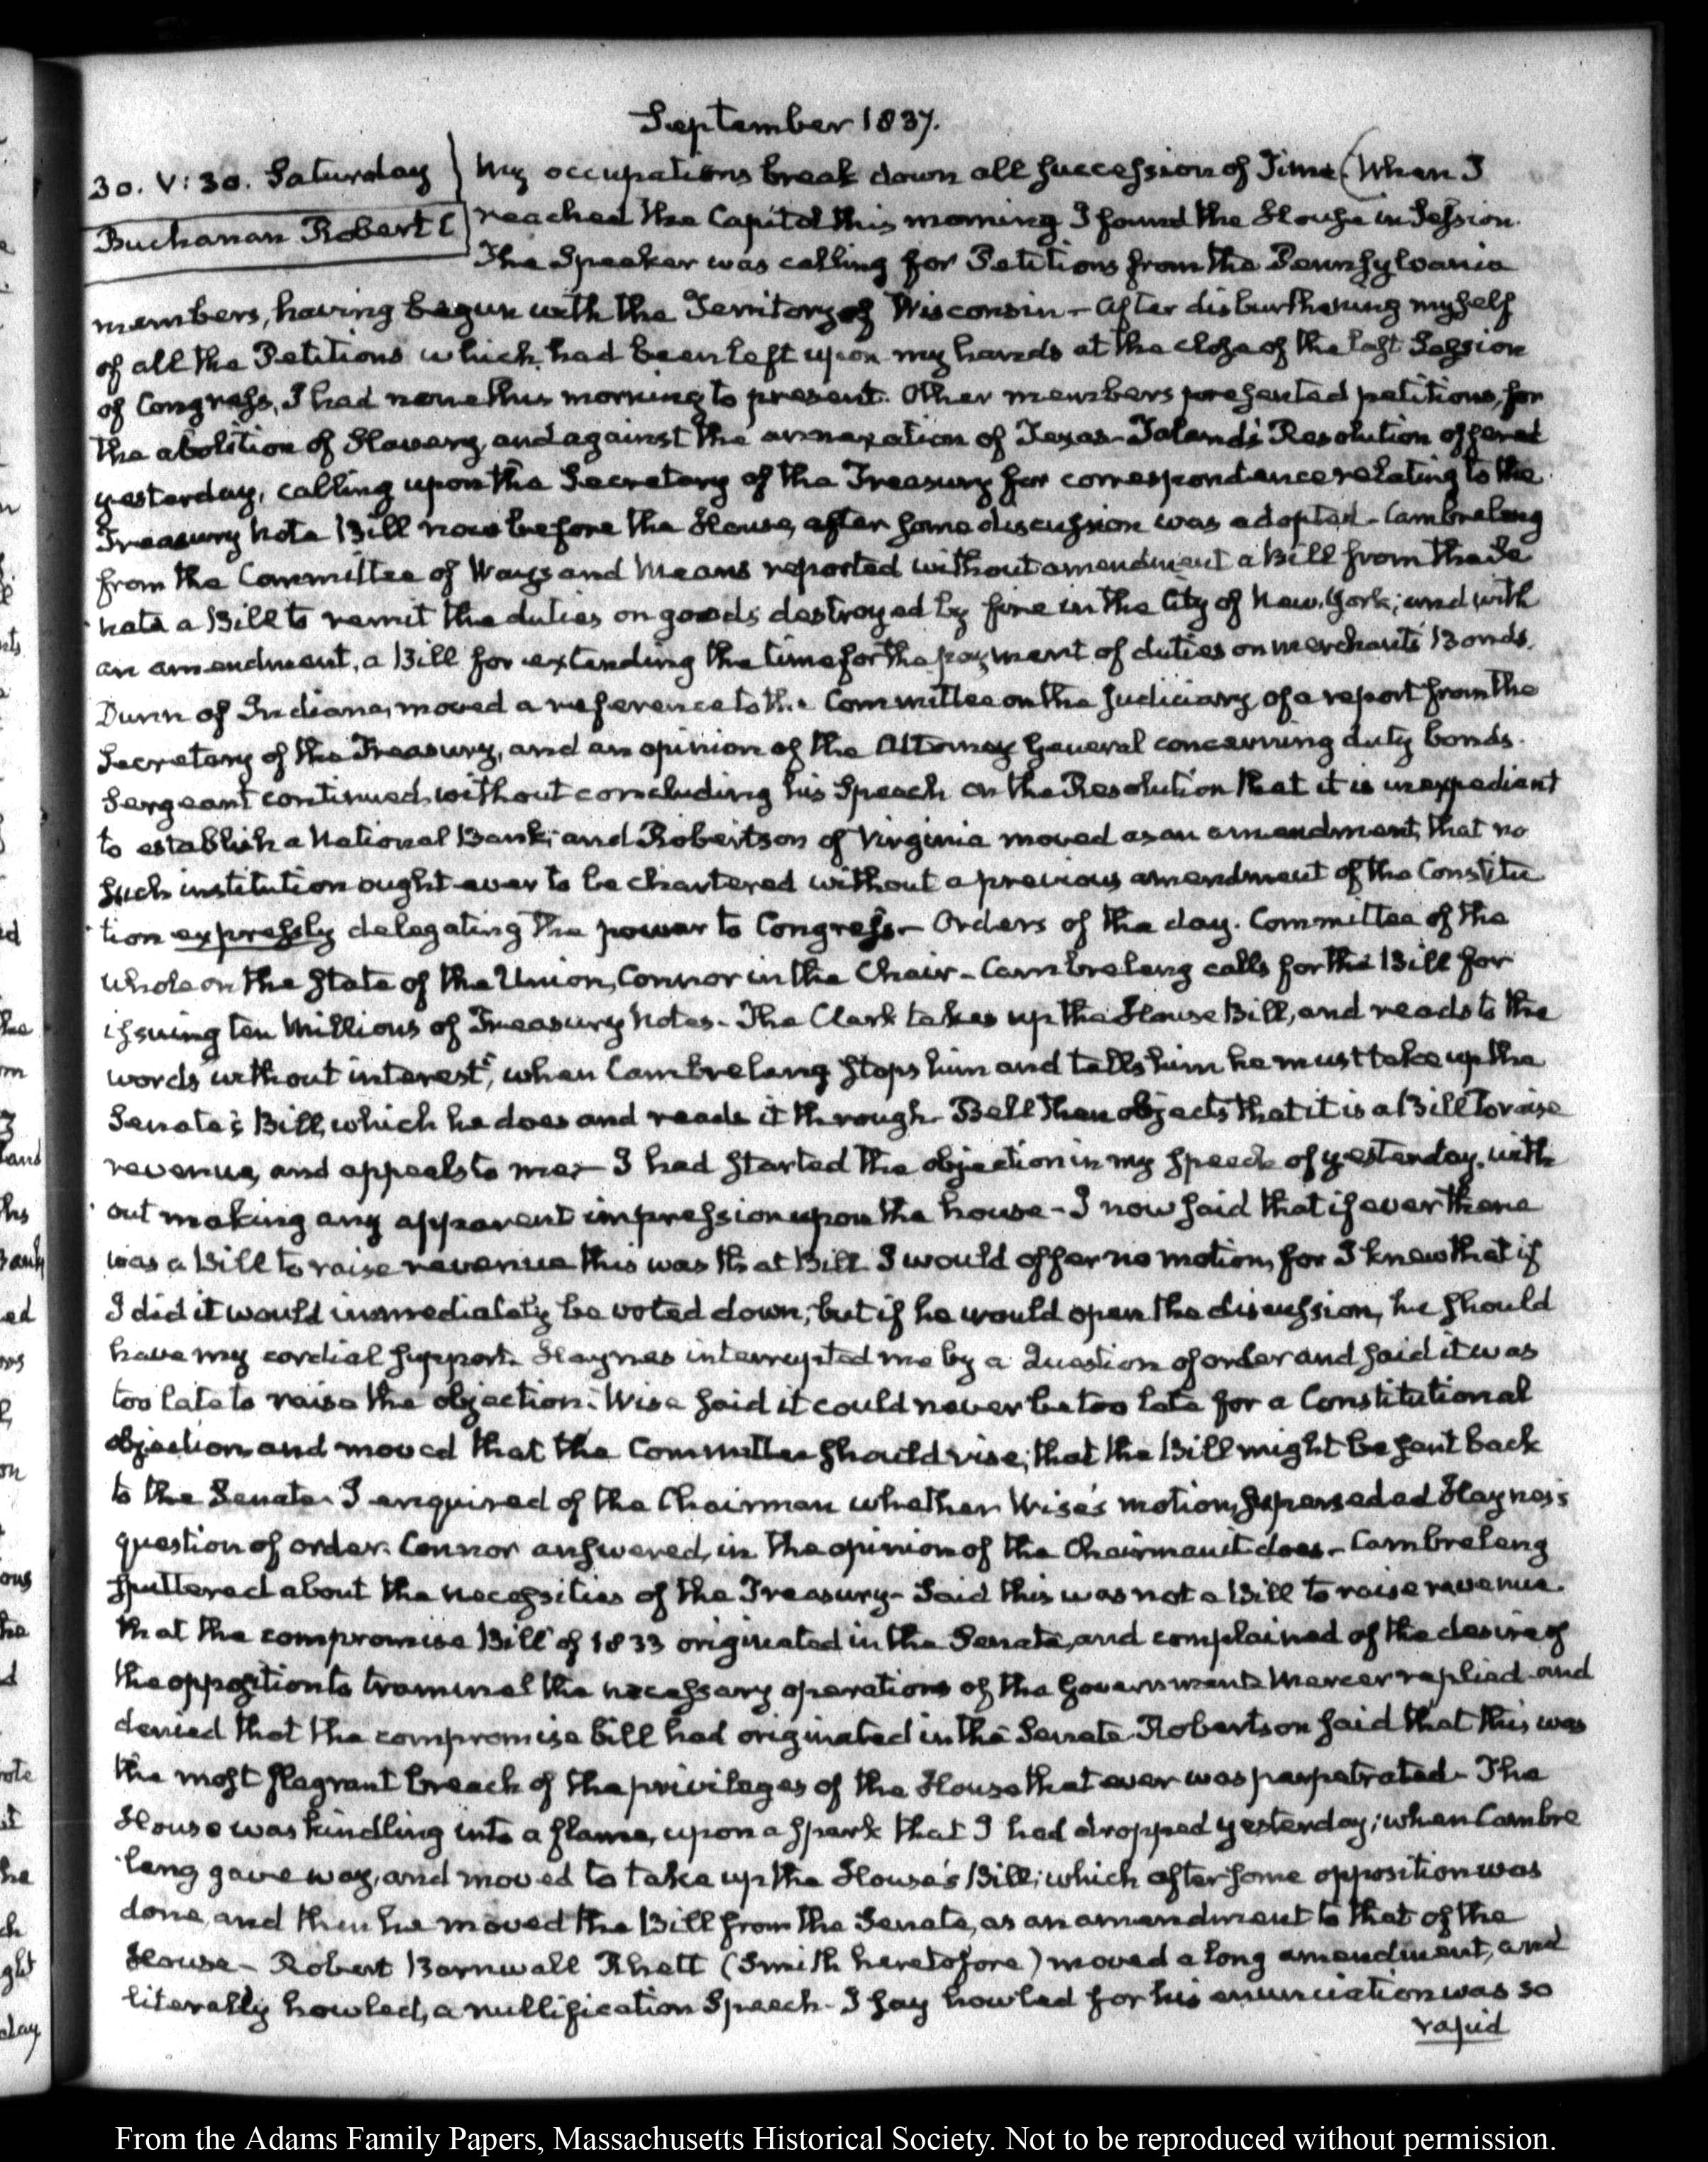 September 1837.
30. V:30. Saturday
Buchanan Robert C
My occupations break down all succession of Time. (When I
reached the Capitol this morning I found the House in Session.
The Speaker was calling for Petitions from the Pennsylvania
members, having begun with the Territory of Wisconsin - After disburthening myself
of all the Petitions which had been left upon my hands at the close of the last Session
of Congress, I had none this morning to present. Other members presented petitions, for
the abolition of Slavery, and against the annexation of Texas - Toland's Resolution offered
yesterday, calling upon the Secretary of the Treasury for correspondence relating to the
Treasury Note Bill now before the House, after some discussion was adopted - Cambreleng
from the Committee of Ways and Means reported without amendment a Bill from the Se
nate a Bill to remit the duties on goods destroyed by fire in the City of New-York; and with
an amendment, a Bill for extending the time for the payment of duties on merchants' Bonds.
Dunn of Indiana, moved a reference to the Committee on the Judiciary of a report from the
Secretary of the Treasury, and an opinion of the Attorney General concerning duty bonds.
Sergeant continued without concluding his Speech on the Resolution that it is inexpedient
to establish a National Bank; and Robertson of Virginia moved as an amendment, that no
such institution ought ever to be chartered without a previous amendment of the Constitu
tion expressly delegating the power to Congress - Orders of the day. Committee of the
whole on the state of the Union, Connor in the Chair - Cambreleng calls for the Bill for
issuing ten Millions of Treasury Notes - The Clerk takes up the House Bill, and reads to the
words "without interest", when Cambreleng stops him and tells him he must take up the
Senate's Bill, which he does and reads it through - Bell then objects that it is a Bill to raise
revenue, and appeals to me; - I had started the objection in my speech of yesterday, with
out making any apparent impression upon the house - I now said that if ever there
was a Bill to raise revenue this was that Bill. I would offer no motion, for I knew that if
I did it would immediately be voted down; but if he would open the discussion, he should
have my cordial support. Haynes interrupted me by a Question of order and said it was
too late to raise the objection. Wise said it could never be too late for a Constitutional
objection and moved that the Committee should rise, that the Bill might be sent back
to the Senate. I enquired of the Chairman whether Wise's motion, superseded Haynes's
question of order. Connor answered, in the opinion of the Chairman it does - Cambreleng
sputtered about the necessities of the Treasury - Said this was not a Bill to raise revenue.
that the compromise Bill of 1833 originated in the Senate, and complained of the desire of
the opposition to trammel the necessary operations of the Government. Mercer replied and
denied that the compromise bill had originated in the Senate. Robertson said that this was
the most flagrant breach of the privileges of the House that ever was perpetrated - The
House was kindling into a flame, upon a spark that I had dropped yesterday; when Cambre
leng gave way, and moved to take up the House's Bill; which after some opposition was
done, and then he moved the Bill from the Senate, as an amendment to that of the
House - Robert Barnwall Rhett (Smith heretofore) moved a long amendment, and
literally howled, a nullification Speech - I say howled for his enunciation was so
rapid
From the Adams Family Papers, Massachusetts Historical Society. Not to be reproduced without permission.